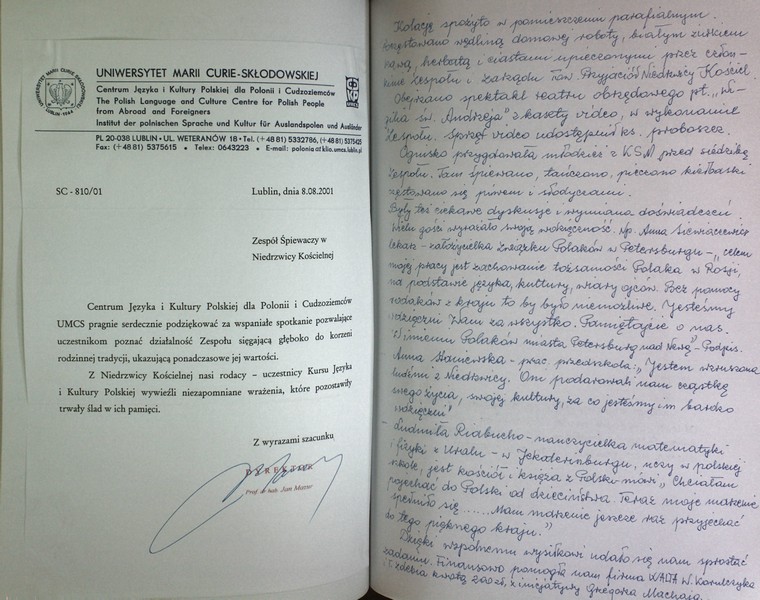 UNIWERSYTET MARII CURIE-SKŁODOWSKIEJ
Centrum Języka i Kultury Polskiej dla Polonii i Cudzoziemców
The Polish Language and Culture Centre for Polish People
from Abroad and Foreigners
Institut der polnischen Sprache und Kultur für Auslandspolen und Ausländer
PL 20-038 LUBLIN • UL. WETERANÓW 18 • Tel. (+48 81) 5332786, (+48 81) 5375425
Fax: (+48 81) 5375615 • Telex: 0643223 • E-mail: polonia@klio.umcs.lublin.pl
SC - 810/01
Lublin, dnia 8.08.2001
Zespół Śpiewaczy w
Niedrzwicy Kościelnej
Centrum Języka i Kultury Polskiej dla Polonii i Cudzoziemców
UMCS pragnie serdecznie podziękować za wspaniałe spotkanie pozwalające
uczestnikom poznać działalność Zespołu sięgającą głęboko do korzeni
rodzinnej tradycji, ukazującą ponadczasowe jej wartości.
Z Niedrzwicy Kościelnej nasi rodacy – uczestnicy Kursu Języka
i Kultury Polskiej wywieźli niezapomniane wrażenia, które pozostawiły
trwały ślad w ich pamięci.
Z wyrazami szacunku
DYREKTOR
Prof. dr hab. Jan Mazur
Kolację spożyto w pomieszczeniu parafialnym.
Częstowano wędliną domowej roboty, białym serkiem
kawą, herbatą i ciastami upieczonymi przez człon-
kinie Zespołu i zarządu Tow. Przyjaciół Niedrzwicy Kościel.
Obejrzano spektakl teatru obrzędowego pt. "Wi-
gilia św. Andrzeja" z kasety video, w wykonaniu
Zespołu. Sprzęt video udostępnił ks. proboszcz.
Ognisko przygotowała młodzież z KSM przed siedzibą
Zespołu. Tam śpiewano, tańczono, pieczono kiełbaski
częstowano się piwem i słodyczami.
Były też ciekawe dyskusje i wymiana doświadczeń.
Wielu gości wyrażało swoją wdzięczność. Np. Anna
lekarz - założycielka Związku Polaków w Petersburgu - "celem
mojej pracy jest zachowanie tożsamości Polaka w Rosji,
na podstawie języka, kultury, wiary ojców. Bez pomocy
rodaków z kraju to by było niemożliwe. Jesteśmy
wdzięczni Wam za wszystko. Pamiętajcie o nas.
W imieniu Polaków miasta Petersburg nad Newą" - Podpis.
Anna Staniewska - prac. przedszkola: "Jestem wzruszona
ludźmi z Niedrzwicy. Oni podarowali nam cząstkę
swego życia, swojej kultury, za co jesteśmy im bardzo
wdzięczni"
- Ludmiła Riabucho - nauczycielka matematyki
i fizyki z Uralu - w Jekaterinburgu, uczy w polskiej
szkole, jest kościół i księża z Polski mówi "Chciałam
pojechać do Polski od dzieciństwa. Teraz moje marzenie
spełniło się ...... Mam marzenie jeszcze raz przyjechać
do tego pięknego kraju."
Dzięki wspólnemu wysiłkowi udało się nam sprostać
zadaniu. Finansowo pomogła nam firma W.
kwotą 200 zł, z inicjatywy Grzegorza